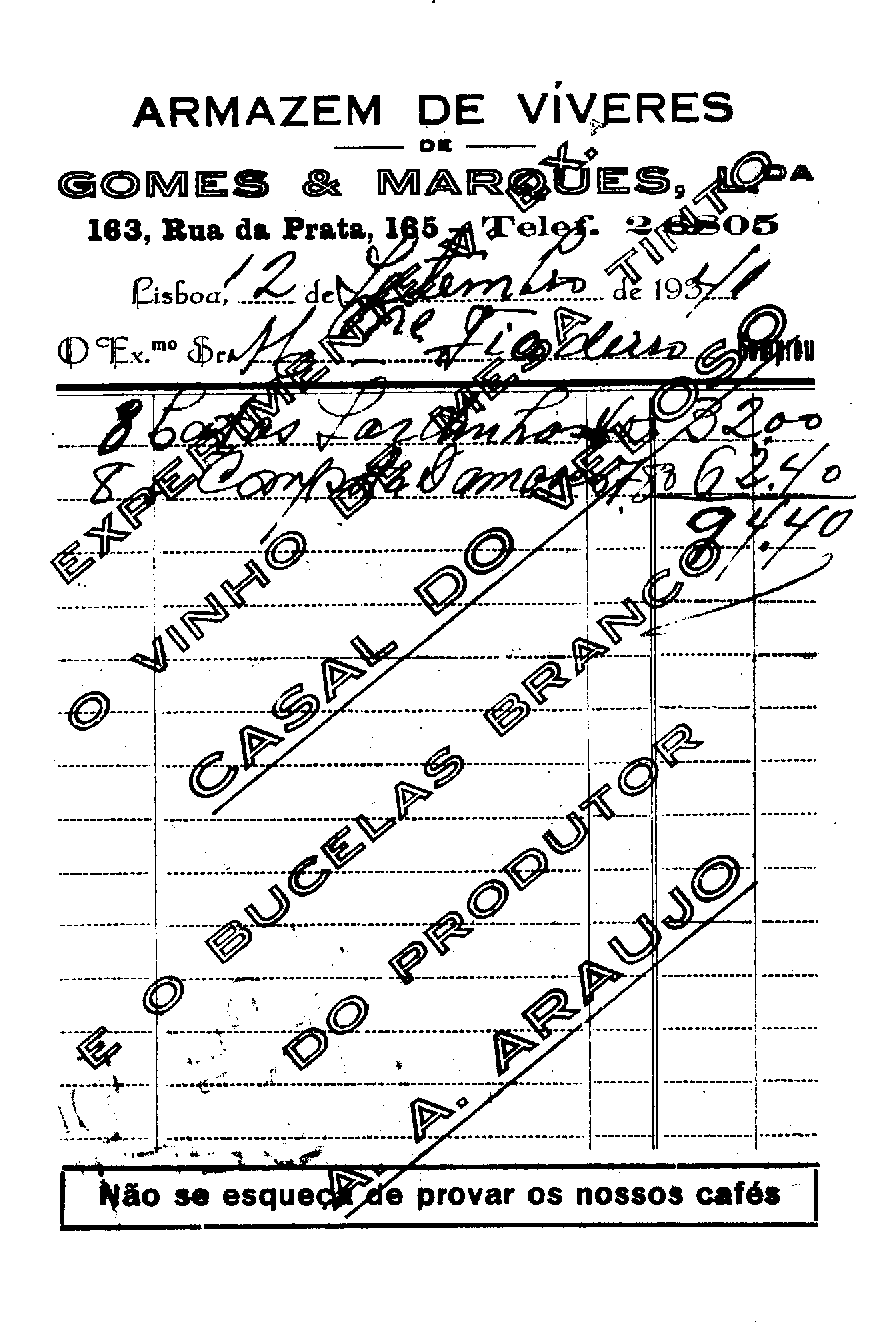 ARMAZEM DE VÍVERES
DE
GOMES & MARQUES, L.DA
163, Rua da Prata, 165 - Telef. 26805
Lisboa, 12 de Setembro de 193
O Ex.mo Snr. Comprou
8 32.00
8 Comp 7.80 62.40
94.40
EXPERIMENTE A EX.
O VINHO DE MESA TINTO
CASAL DO VELOSO
E O BUCELAS BRANCO
DO PRODUTOR
A. A. ARAUJO
Não se esqueça de provar os nossos cafés